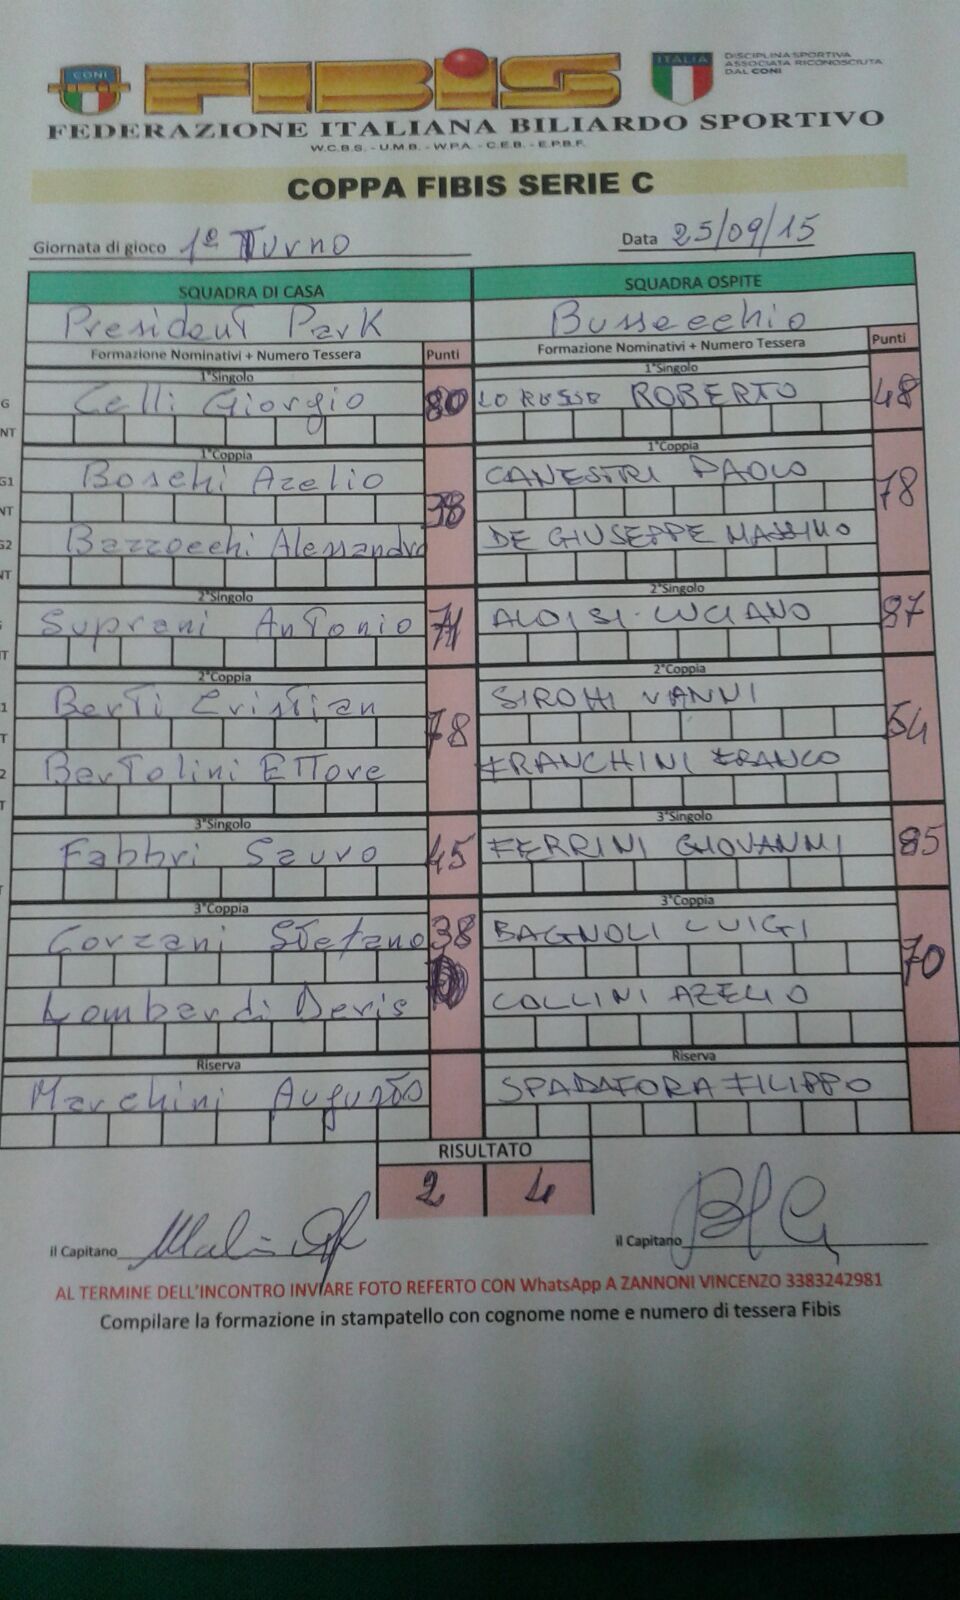 CONI FIBIS ITALIA
DISCIPLINA SPORTIVA
ASSOCIATA RICONOSCIUTA
DAL CONI
FEDERAZIONE ITALIANA BILIARDO SPORTIVO
W.C.B.S. - U.M.B. - W.P.A. - C.E.B. - E.P.B.F.
COPPA FIBIS SERIE C
Giornata di gioco 1º Turno Data 25/09/15
SQUADRA DI CASA SQUADRA OSPITE
President Park Bussecchio
Formazione Nominativi + Numero Tessera Punti Formazione Nominativi + Numero Tessera Punti
1°Singolo 1°Singolo
G Celli Giorgio 80 LO RUSSO ROBERTO 48
NT
1°Coppia 1°Coppia
G1 Boschi Azelio CANESTRI PAOLO 78
NT 38
G2 Bazzocchi Alessandro DE GIUSEPPE MASSIMO
NT
2°Singolo 2°Singolo
Suprani Antonio 71 ALOISI LUCIANO 87
T
2°Coppia 2°Coppia
1 Berti Cristian SIROHI VANNI
T 78 54
2 Bertolini Ettore FRANCHINI FRANCO
T
3°Singolo 3°Singolo
Fabbri Sauro 45 FERRINI GIOVANNI 85
3°Coppia 3°Coppia
Gorzani Stefano 38 BAGNOLI LUIGI
70
Lombardi Deris COLLINI AZELIO
Riserva Riserva
Marchini Augusto SPADAFORA FILIPPO
RISULTATO
2 4
il Capitano il Capitano
AL TERMINE DELL'INCONTRO INVIARE FOTO REFERTO CON WhatsApp A ZANNONI VINCENZO 3383242981
Compilare la formazione in stampatello con cognome nome e numero di tessera Fibis